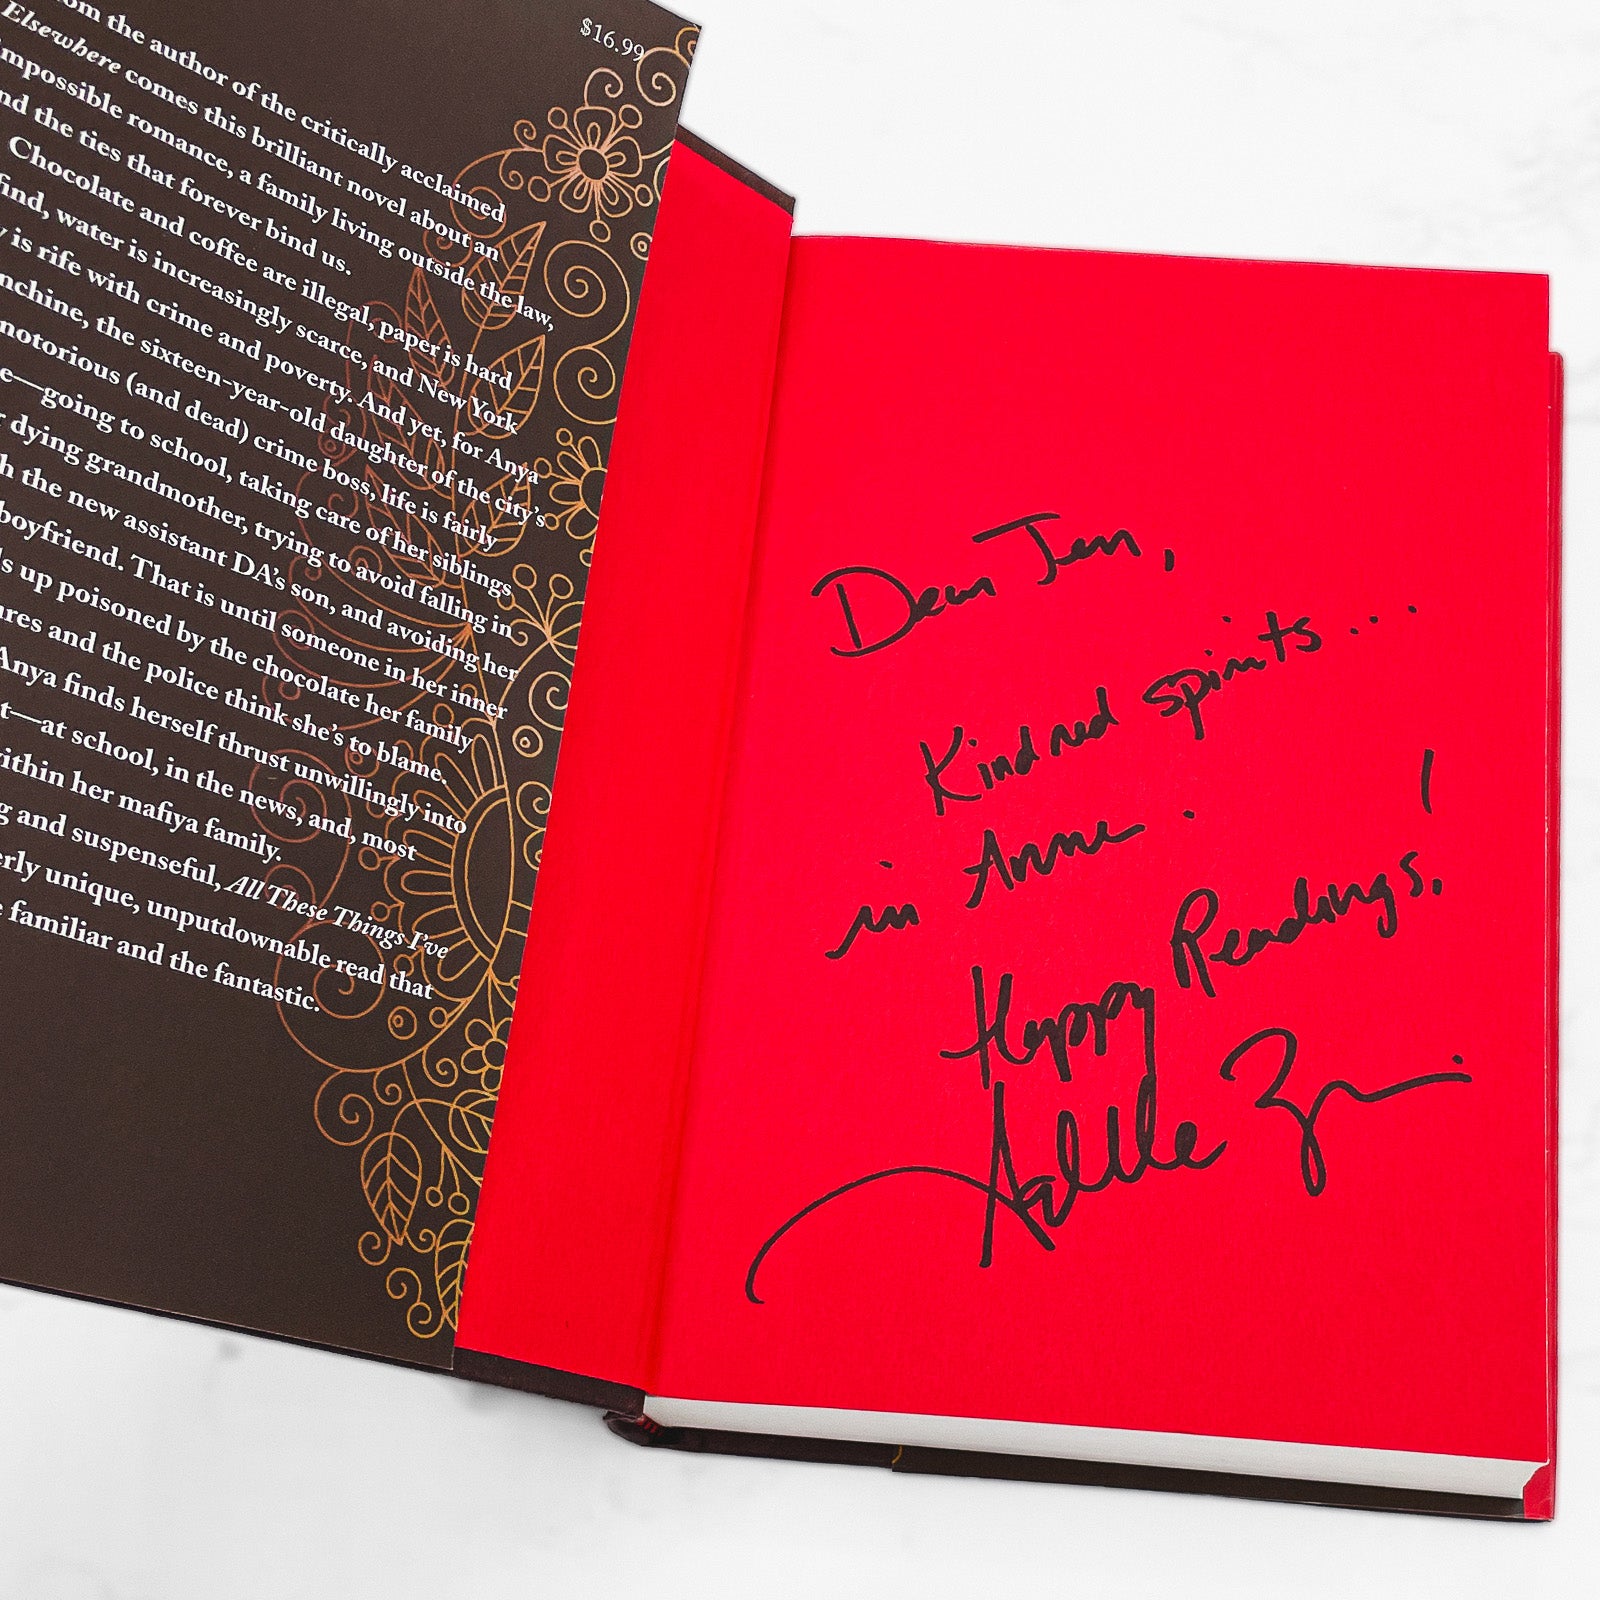 $16.99
om the author of the critically acclaimed
Elsewhere comes this brilliant novel about an
impossible romance, a family living outside the law,
nd the ties that forever bind us.
Chocolate and coffee are illegal, paper is hard
find, water is increasingly scarce, and New York
y is rife with crime and poverty. And yet, for Anya
nchine, the sixteen-year-old daughter of the city's
notorious (and dead) crime boss, life is fairly
e—going to school, taking care of her siblings
r dying grandmother, trying to avoid falling in
h the new assistant DA's son, and avoiding her
boyfriend. That is until someone in her inner
s up poisoned by the chocolate her family
ares and the police think she's to blame.
Anya finds herself thrust unwillingly into
t—at school, in the news, and, most
within her mafiya family.
g and suspenseful, All These Things I've
erly unique, unputdownable read that
e familiar and the fantastic.
Dear Jen,
Kindred spirits...
in Anne.
Happy Readings!